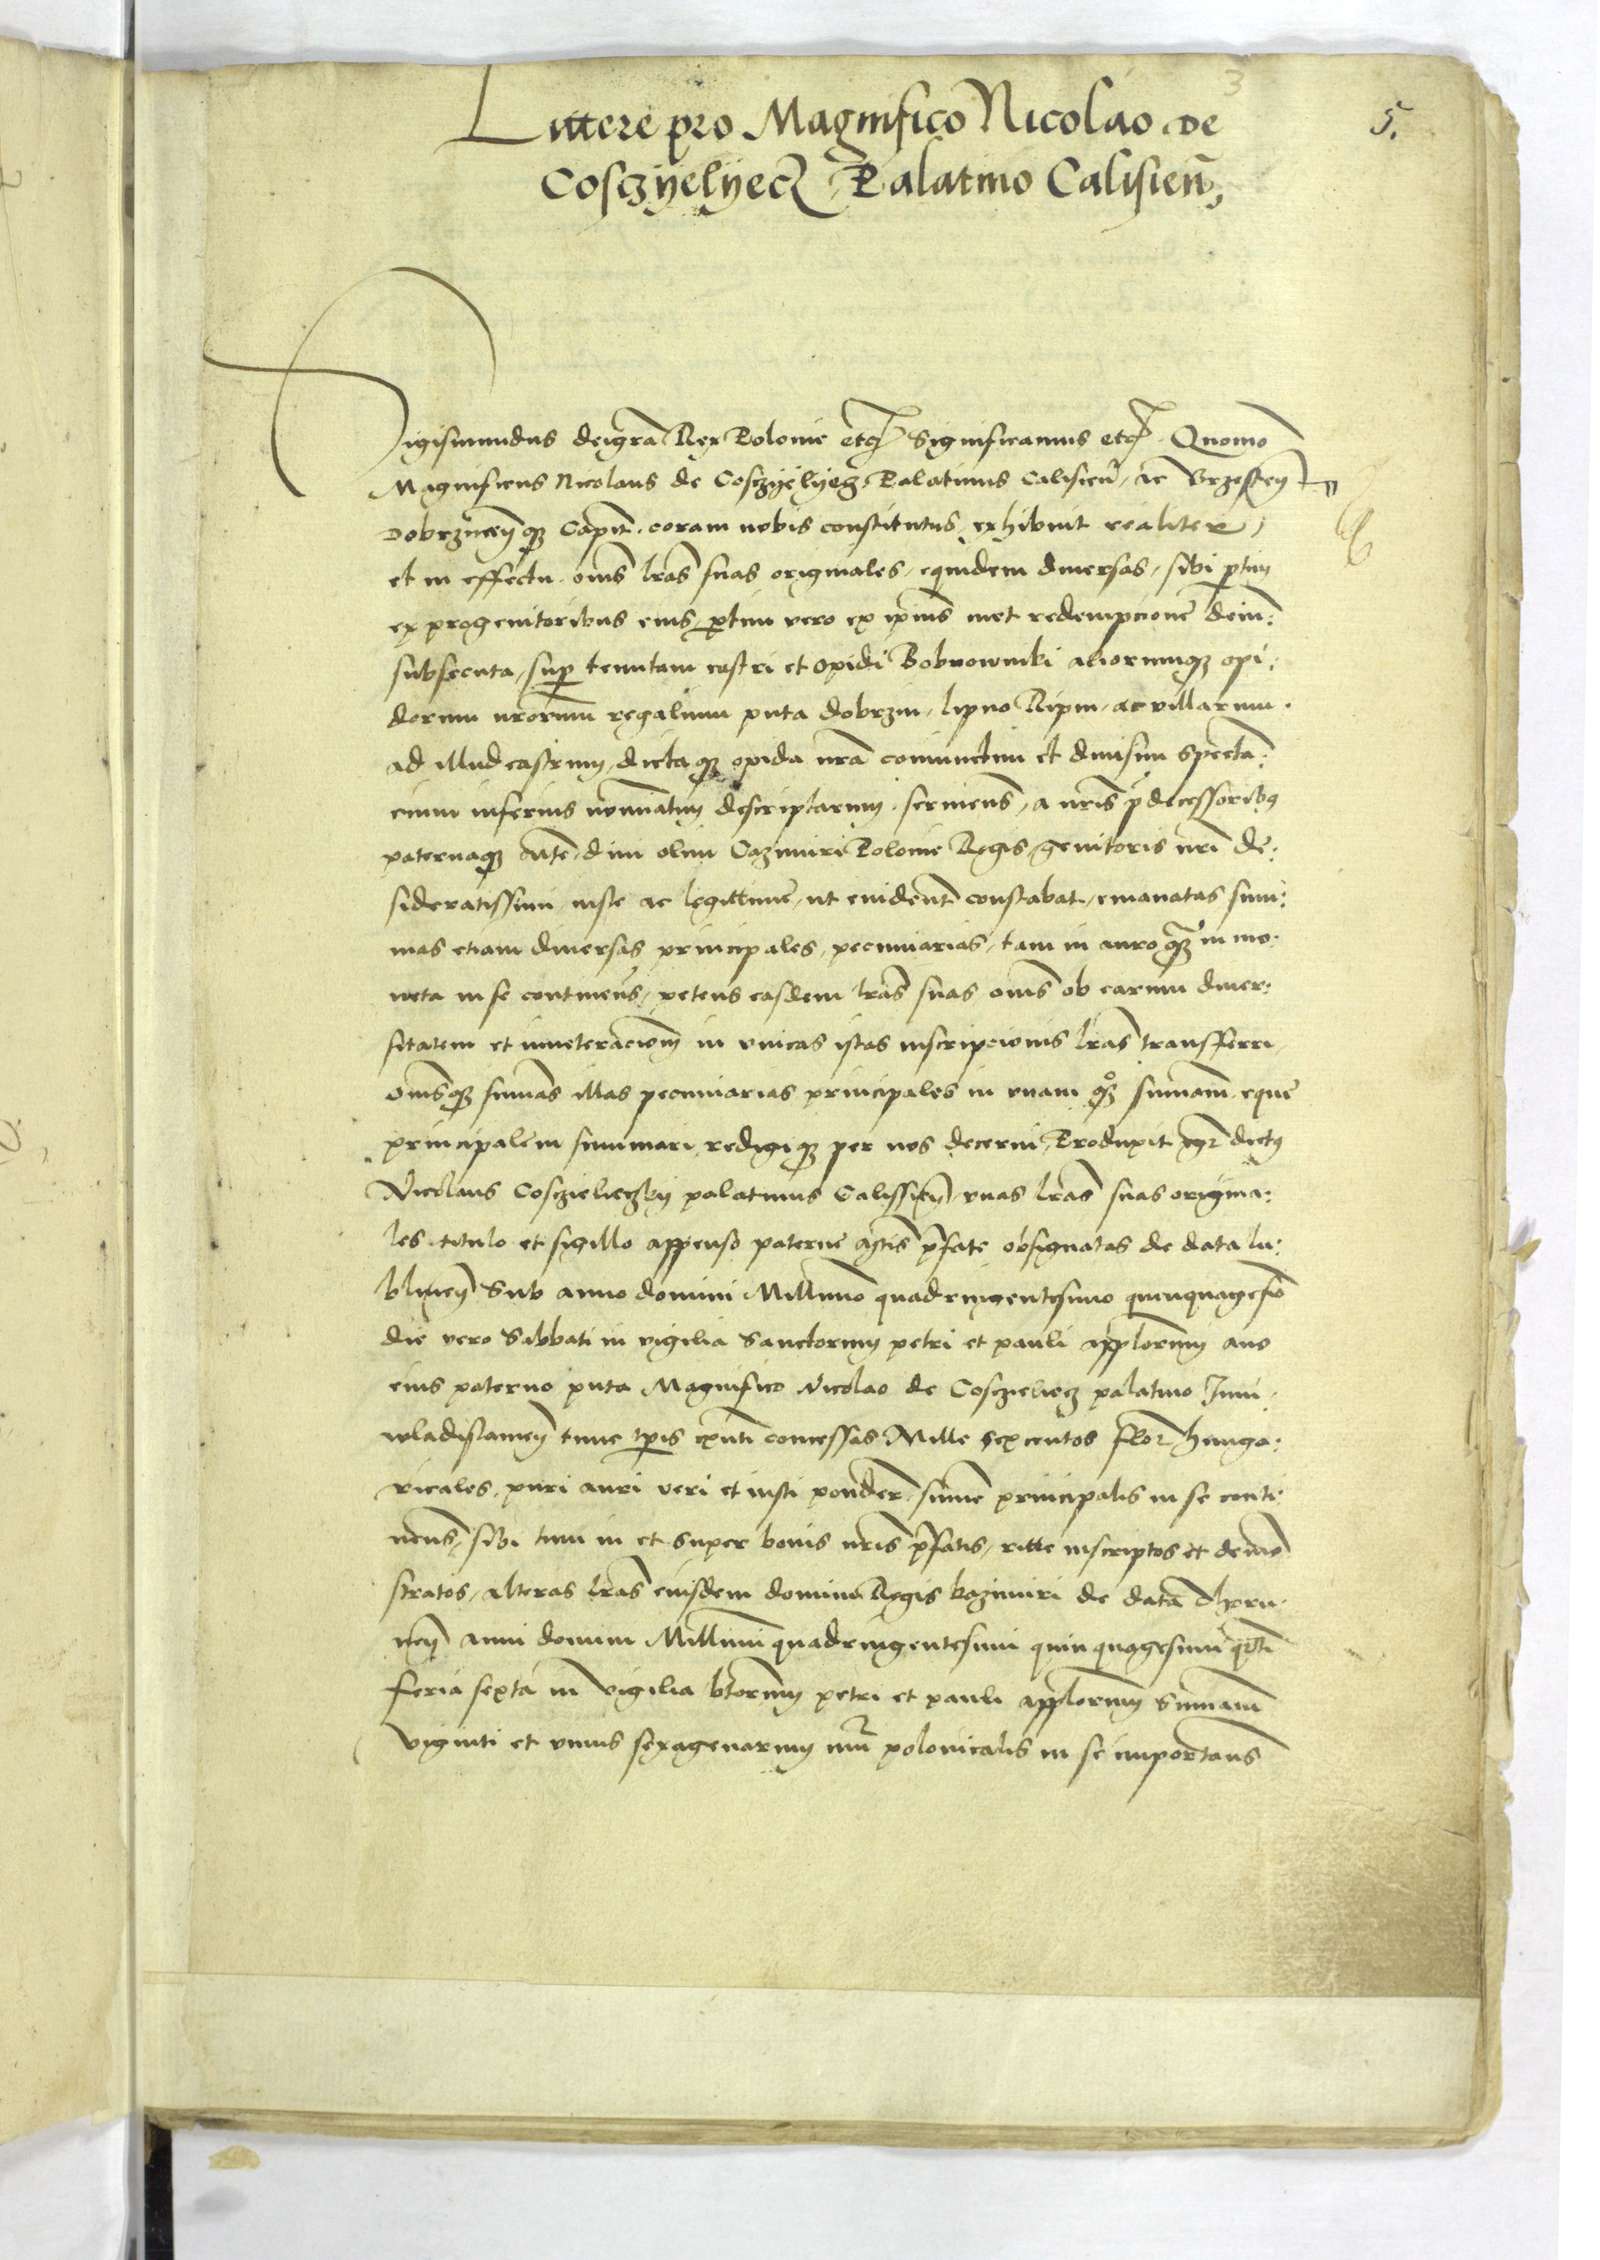 3
5.
Littere pro Magnifico Nicolao de
Cosczyelyecz Palatino Calisien̄
Sigismundus dei gr̄a Rex Polonie etc̄ Significamus etc̄. Quomō
Magnificus Nicolaus de Cosczyelyecz Palatinus Calisien̄, ac Brzesten̄
Dobrzinen̄qꝫ Capit̄. coram nobis constitutus, exhibuit realiter
et in effectu. om̄s l̄ras suas originales, equidem diuersas, sibi ꝑtim
ex progenitoribus eius, ꝑtim vero ex ip̄ius met redempcione dein:
subsecuta, suꝑ tenutam castri et opidi Bobrowniki aliorumqꝫ opi:
dorum n̄rorum regalium puta Dobrzin, Lipno Ripin, ac villarum.
ad illud castrum, dictaqꝫ opida n̄ra coniunctim et diuisim specta:
cium inferius nominatim descriptarum. seruiens̄, a n̄ris p̄decessoribꝰ
paternaqꝫ Mte. diui olim Cazimiri Polonie Regis, genitoris n̄ri de:
sideratissimi, iuste ac legittime, ut euident̄ constabat, emanatas sum:
mas etiam diuersas principales, pecuniarias, tam in auro qꝫ in mo:
neta in se continen̄s, petens easdem l̄ras suas om̄s ob earum diuer:
sitatem et inueteracionem̄ in vnicas istas inscripcionis l̄ras transferri,
Om̄sqꝫ sum̄as illas pecuniarias principales in vnam qꝫ sum̄am eque
principalem summari, redigiqꝫ per nos decerni, Produxit dictꝰ
Nicolaus Cosczieleczky palatinus Calissien̄, vnas l̄ras suas origina:
les titulo et sigillo appenso paterne M̄tis p̄fate obsignatas de data Lu:
blinen̄ Sub anno domini Millimo quadringentesimo quinquagesiō
die vero Sabbati in vigilia Sanctorum petri et pauli app̄lorum auo
eius paterno puta Magnifico Nicolao de Coscziehecz palatino Juni
wladislauien̄ tunc tp̄is exn̄ti concessas Mille sexcentos flor̄ hunga:
ricales, puri auri veri et iusti ponder̄, sum̄e principalis in se conti
nen̄s, sibi tum in et super bonis n̄ris p̄fatis, ritte inscriptos et demō
stratos, Alteras l̄ras eiusdem domini Regis Kazimiri de data Thoru:
nen̄ anni domini Millimi quadringentesimi quinquagesimi qr̄ti
feria sexta in vigilia b̄torum petri et pauli app̄lorum Sum̄am
viginti et vnius sexagenarum num̄ polonicalis in se importan̄s